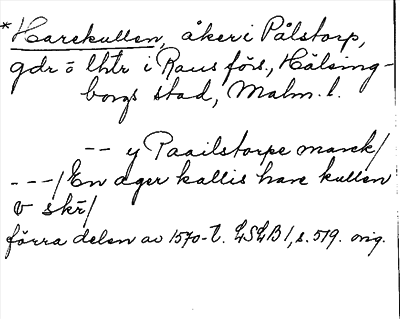 *Harekullen, åker i Pålstorp,
gdr o lhtr i Raus förs., Hälsing-
borgs stad, Malm. l.
-- y Paailstorpe marck/
---/En ager kallis hare kullen
skr/
förra delen av 1570-t. LSLB 1, s. 519. orig.